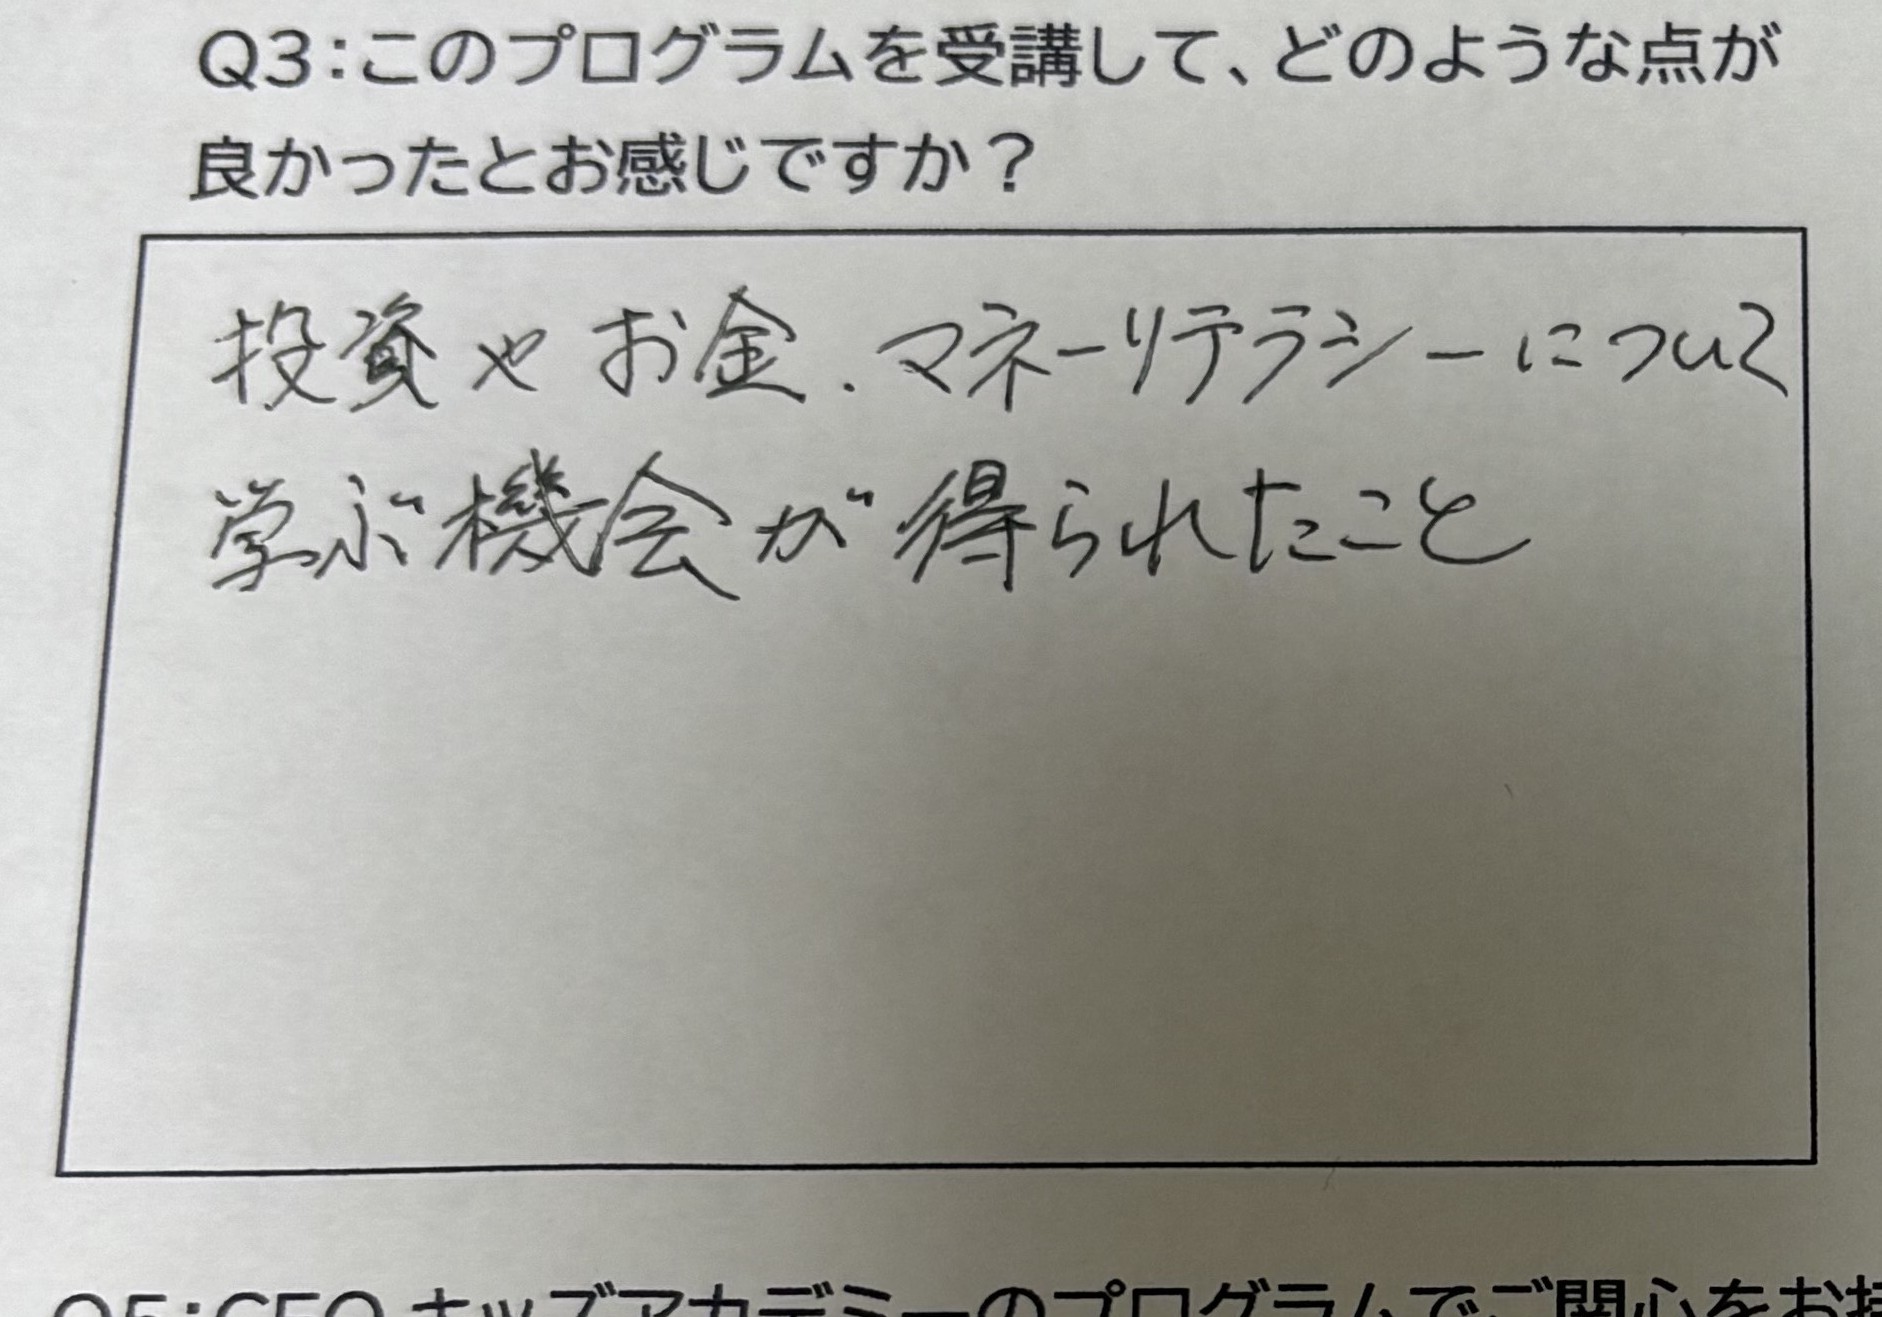 Q3:このプログラムを受講して、どのような点が
良かったとお感じですか？
投資やお金.マネーリテラシーについて
学ぶ機会が得られたこと
Q5:CEOキッズアカデミーのプログラムでご関心をお持